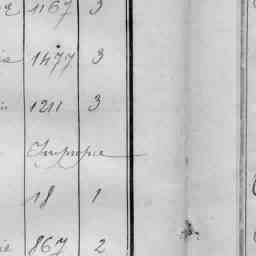 1167 3
1477 3
1211 3
Impropre
18 1
867 2